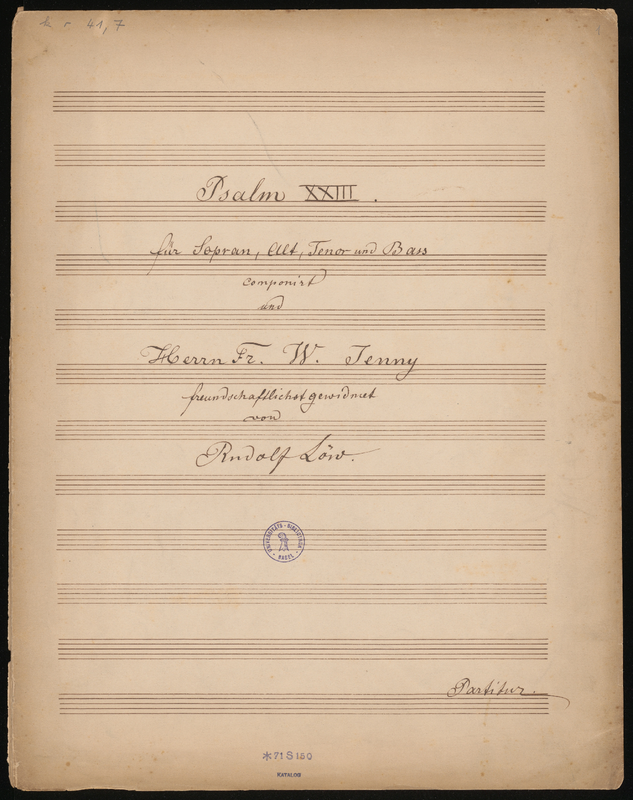 kr 41,7
Psalm XXIII.
für Sopran, Alt, Tenor und Bass
componirt
und
Herrn Fr. W. Jenny
freundschaftlichst gewidmet
von
Rudolf Löw.
UNIVERSITÄTS-BIBLIOTHEK
BASEL
Partitur.
*71 S 150
KATALOG